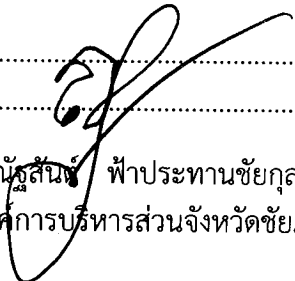 ณัฐสันต์ ฟ้าประทานชัยกุล
องค์การบริหารส่วนจังหวัดชัย